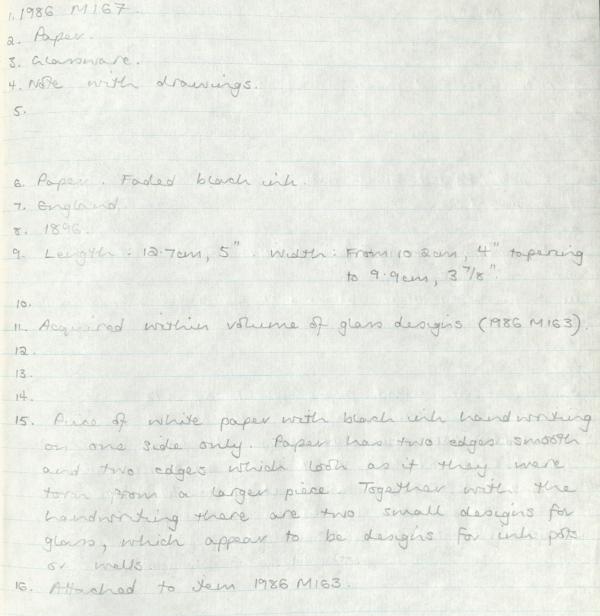 1. 1986 M167.
2. Paper.
3. Glassware.
4. Note with drawings.
5.
6. Paper. Faded black ink.
7. England
8. 1896.
9. Length : 12.7cm, 5". Width : From 10.2cm, 4" tapering
to 9.9cm, 3 7/8".
10.
11. Acquired within volume of glass designs (1986 M163).
12.
13.
14.
15. Piece of white paper with black ink handwriting
on one side only. Paper has two edges smooth
and two edges which look as if they were
torn from a larger piece. Together with the
handwriting there are two small designs for
glass, which appear to be designs for ink pots
or wells.
16. Attached to item 1986 M163.